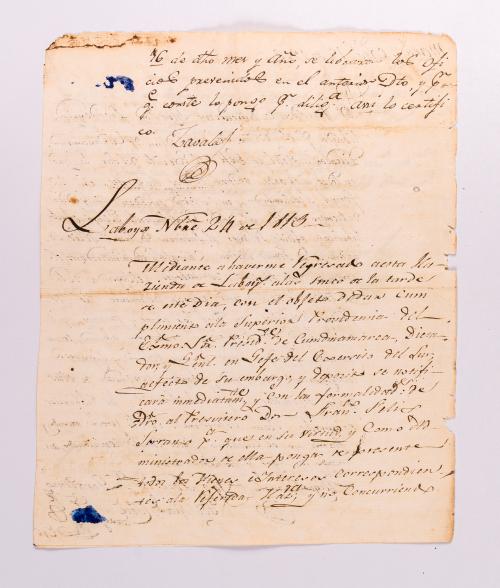 16 de dho mes y Año se libraron los ofi
cios prevenidos en el anterior Dto, y pa.
q.e conste lo pongo pr. dilig.a asi lo certifi
co. Zavala
Laboyos Nbre 24 de 1813
Mediante a haverme regresado a esta Ha
zienda de Laboys. a las cinco de la tarde
de este Dia, con el objeto de dar cum
plimiento a la Superior Providencia del
Exmo. Sor. Presid.te de Cundinamarca, Dicta
dor y Genl. en Gefe del Exercito del Sur,
a efecto de su embargo, y deposito se notifi
cará inmediatam.te y con las formalidad.s de
Dro. al Presvitero Don Fran.co Felis
Soriano p.a que en su virtud, y como Ad
ministrador de ella ponga de presente
todos los Vienes e Intereses correspondien
tes a la referida Haz.da y no, Concurriend